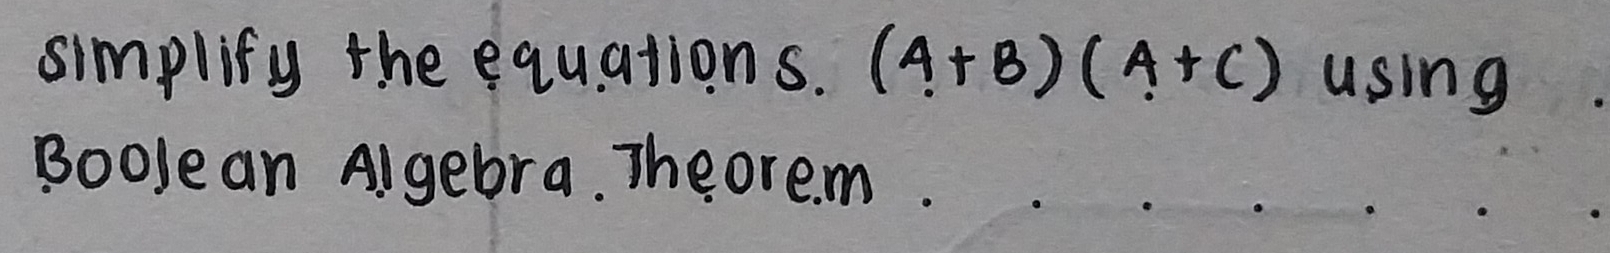 simplify the equations. (A+B)(A+C) using
Boolean Algebra. Theorem